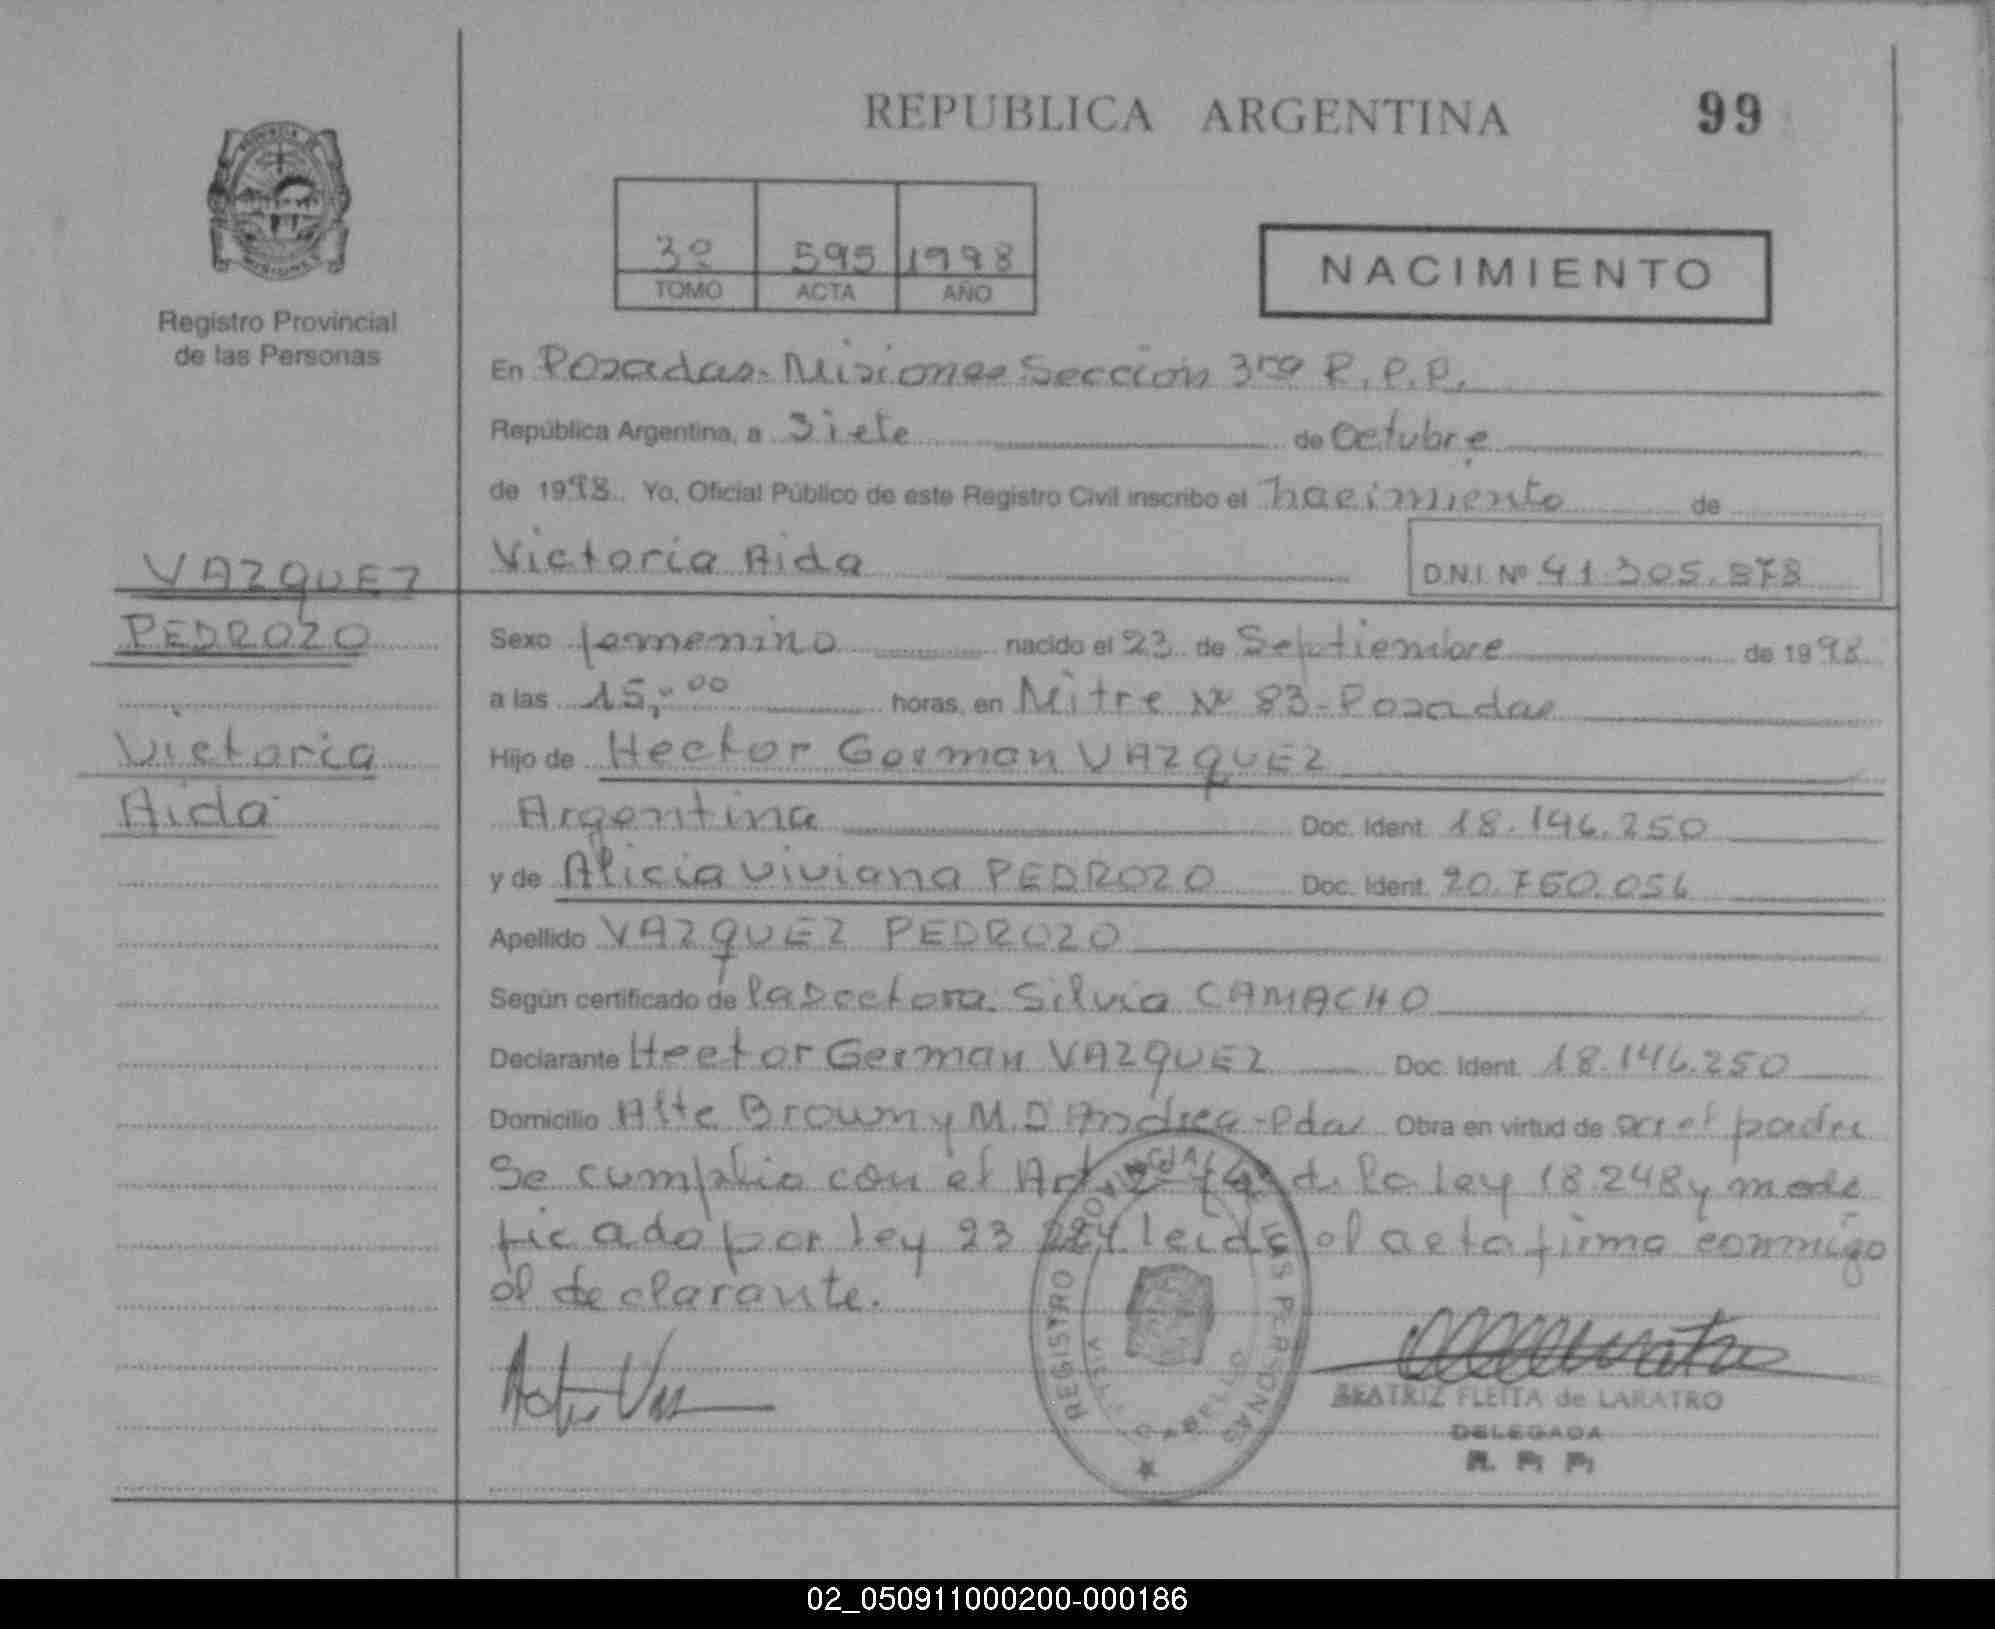 REPUBLICA ARGENTINA 99
3º 595 1998
TOMO ACTA AÑO
NACIMIENTO
Registro Provincial
de las Personas
En Posadas-Misiones Sección 3ra R.P.P.
República Argentina, a Siete de Octubre
de 1998 Yo, Oficial Público de este Registro Civil inscribo el nacimiento de
Victoria Aida
D.N.I. Nº 41.305.878
VAZQUEZ
PEDROZO
Victoria
Aida
Sexo femenino nacido el 23 de Septiembre de 1998
a las 15,00 horas, en Mitre Nº 83-Posadas
Hijo de Hector German VAZQUEZ
Argentina Doc. Ident. 18.146.250
y de Alicia Viviana PEDROZO Doc. Ident. 20.760.056
Apellido VAZQUEZ PEDROZO
Según certificado de la Doctora Silvia CAMACHO
Declarante Hector German VAZQUEZ Doc. Ident. 18.146.250
Domicilio Alte Brown y M.D Andrea-Pdas Obra en virtud de ser el padre
Se cumplio con el Art. de la ley 18.248 y modi
ficado por ley 23 leida el acta firma conmigo
el declarante.
REGISTRO PROVINCIAL DE LAS PERSONAS
VILLA CABELLO
BEATRIZ FLEITA de LARATRO
DELEGADA
R. P. P.
02_050911000200-000186